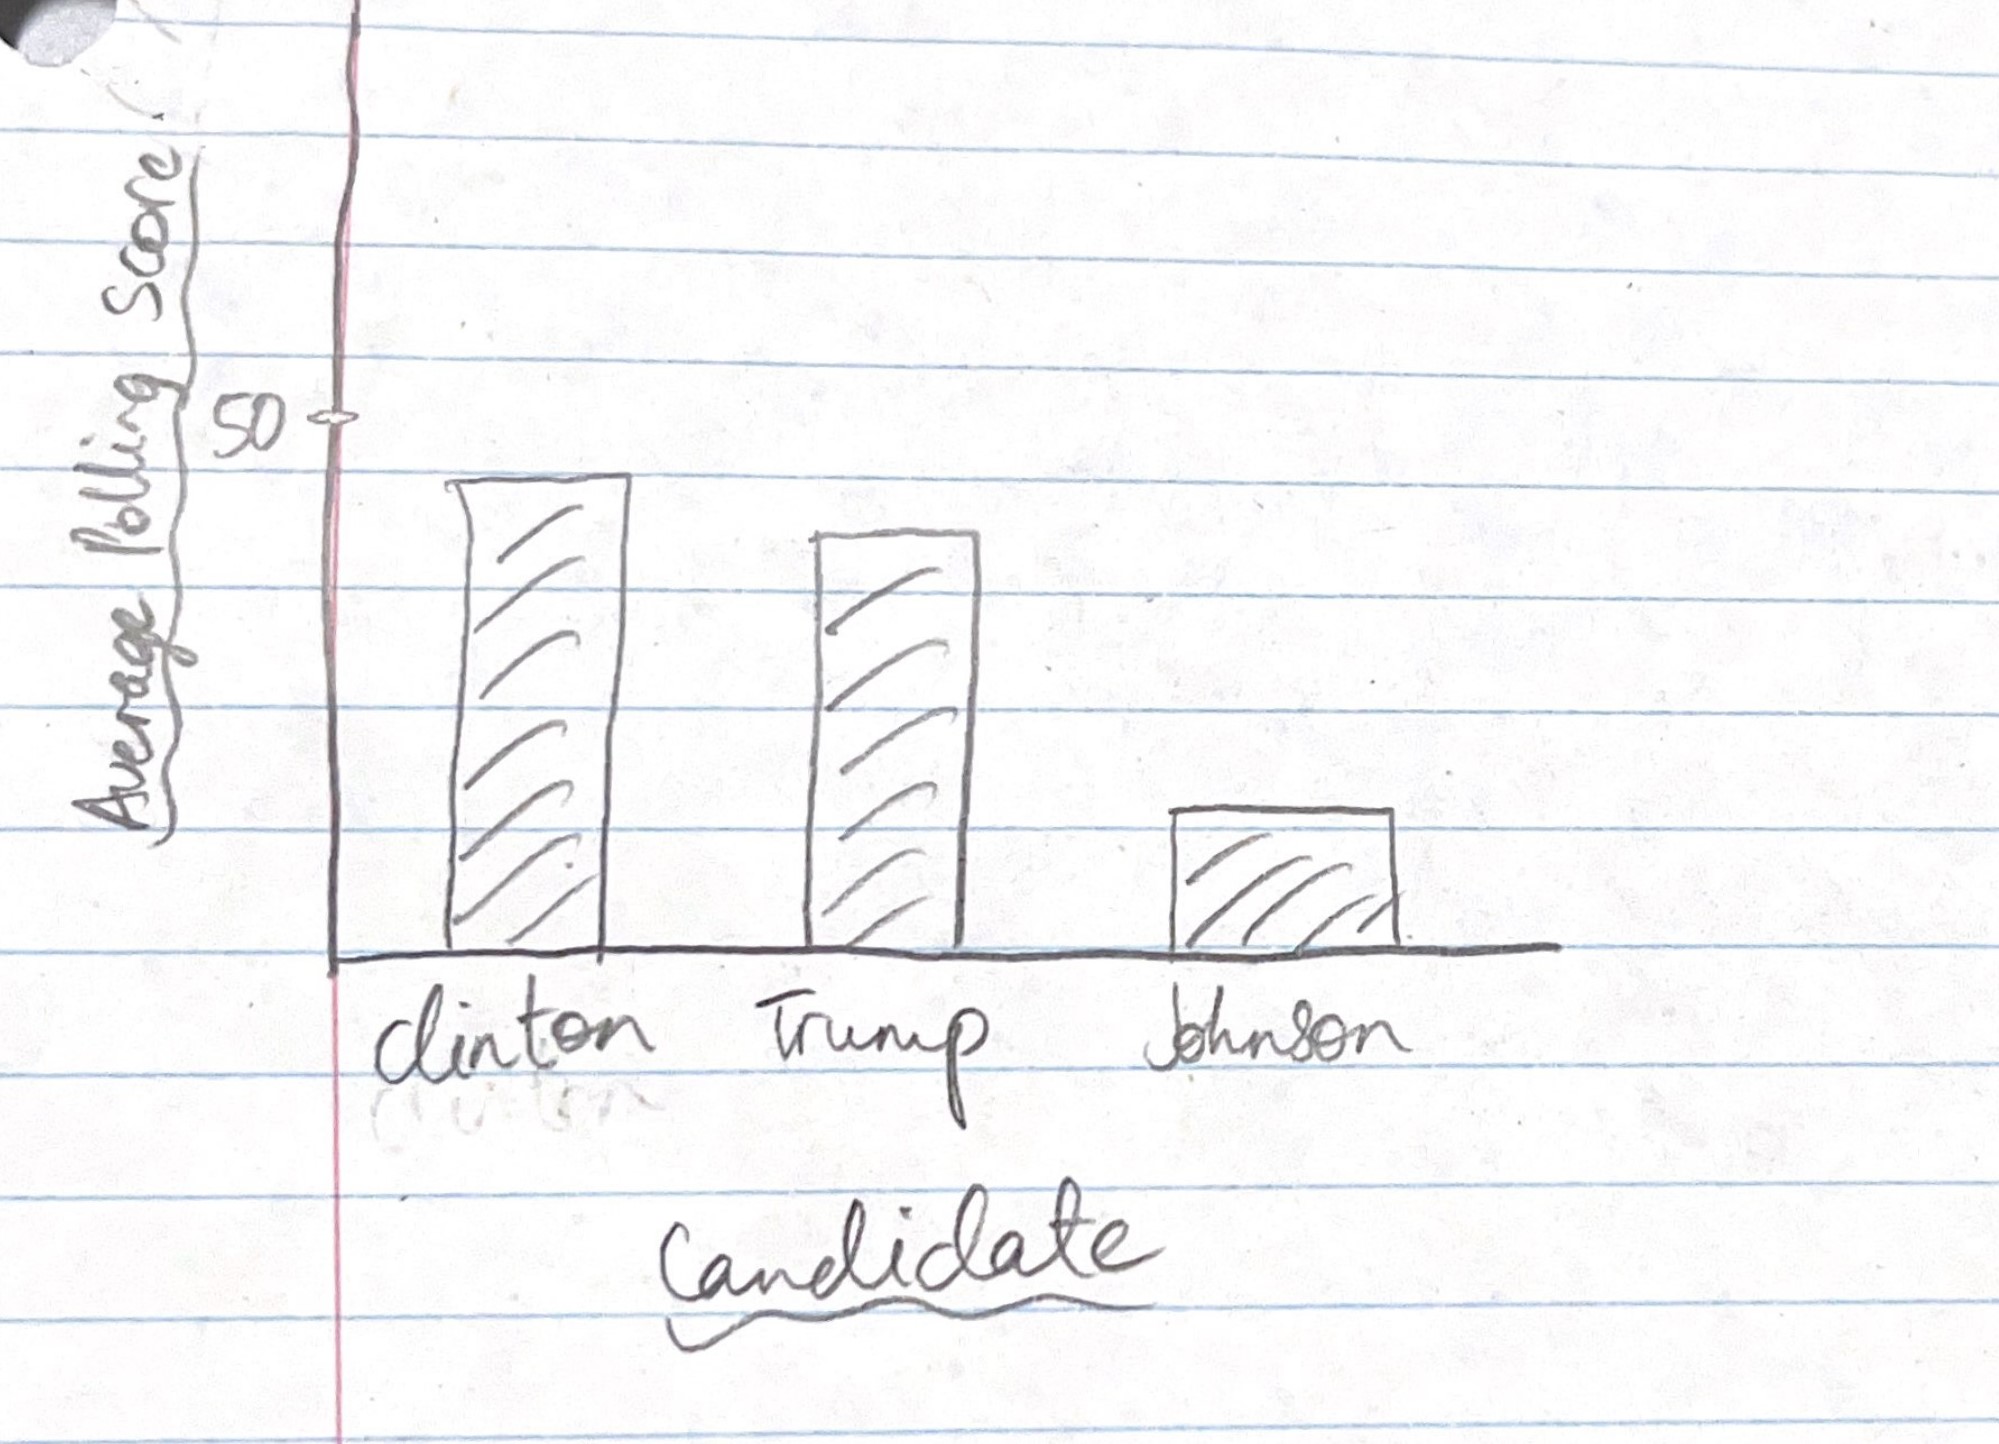 Average Polling Score
50
clinton Trump Johnson
Candidate